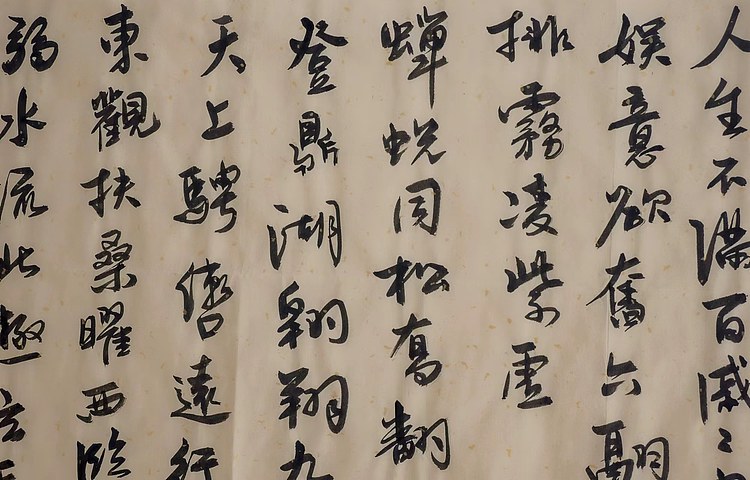 人生不滿百戚〻
娛意欲奮六翮
排霧凌紫虛
蟬蛻同松喬翻
登鼎湖翱翔九
天上騁轡遠行
東觀扶桑曜西臨
弱水流北極玄